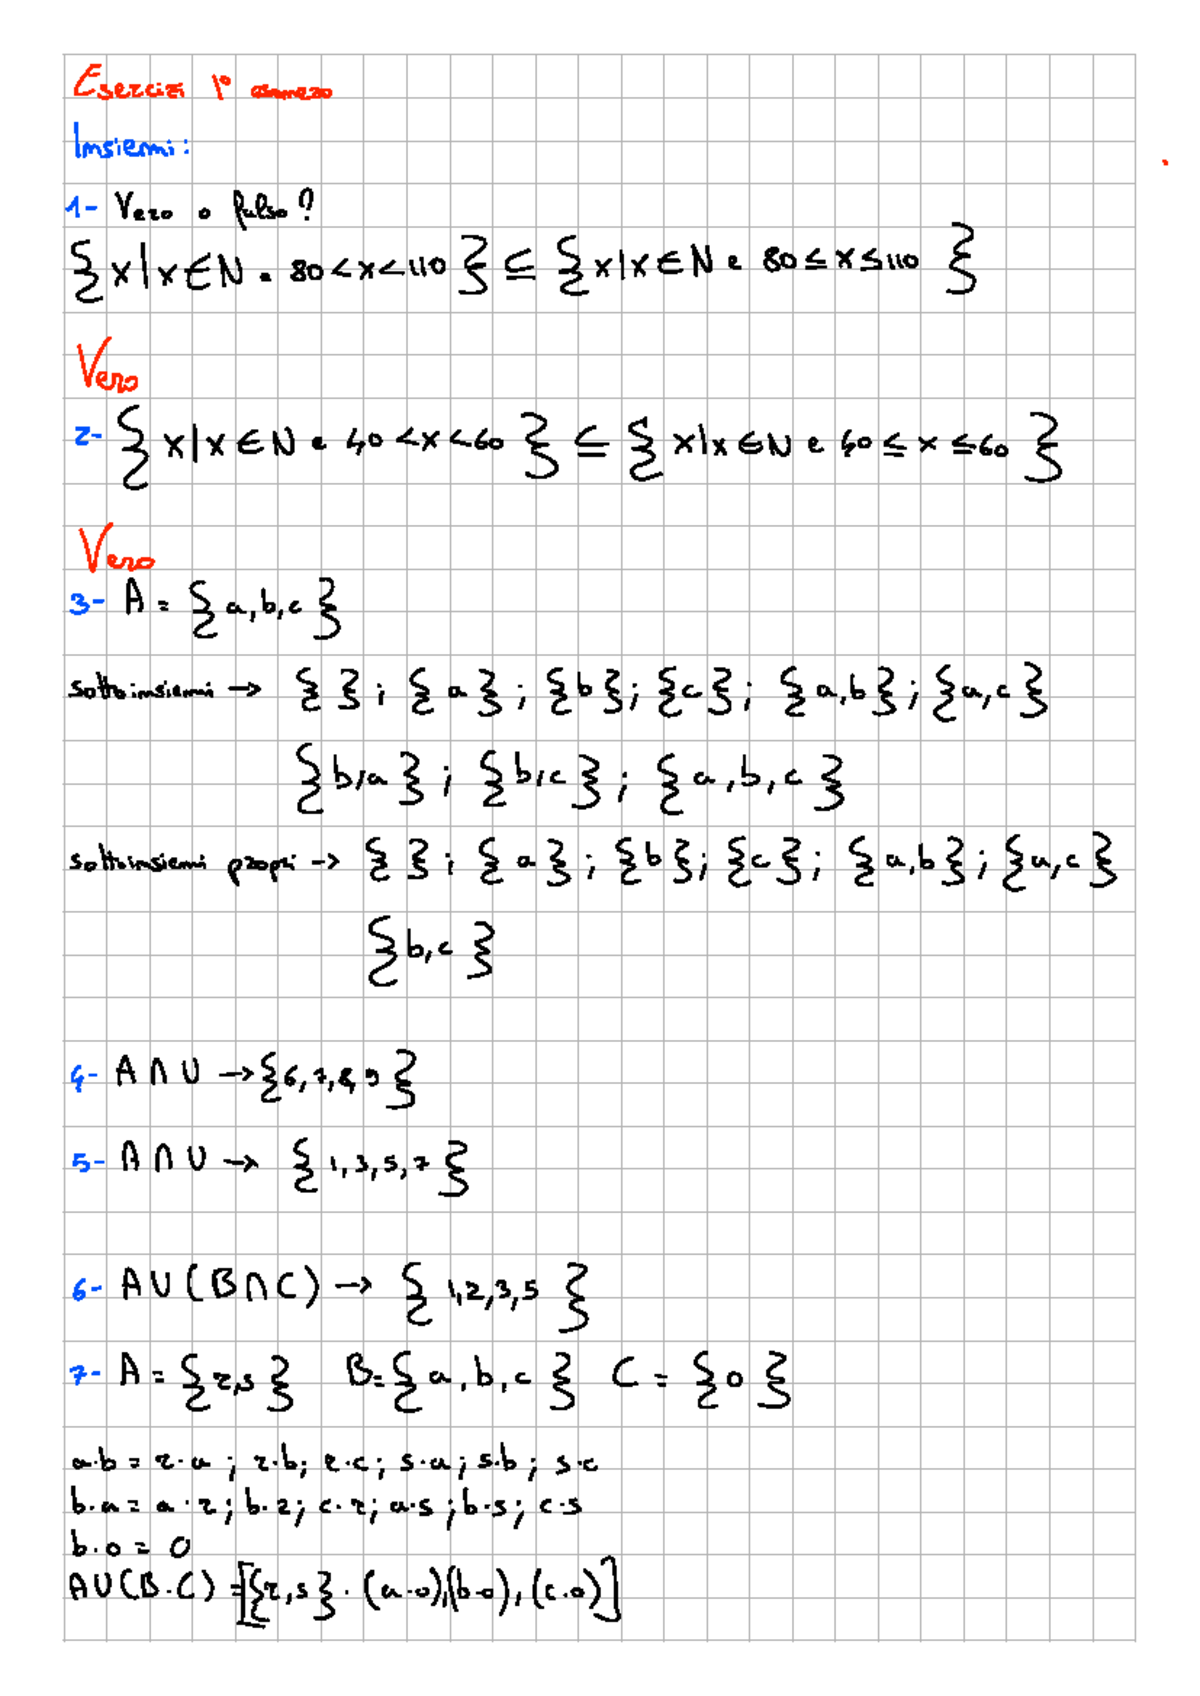 Esercizi 1°
Insiemi:
1- Vero o falso?
{x|x∈N e 80<x<110} ⊆ {x|x∈N e 80≤x≤110}
Vero
2- {x|x∈N e 40<x<60} ⊆ {x|x∈N e 40≤x≤60}
Vero
3- A={a,b,c}
sottoinsiemi → { }; {a}; {b}; {c}; {a,b}; {a,c}
{b,a}; {b,c}; {a,b,c}
sottoinsiemi propri → { }; {a}; {b}; {c}; {a,b}; {a,c}
{b,c}
4- A∩U → {6,7,8,9}
5- A∩U → {1,3,5,7}
6- A∪(B∩C) → {1,2,3,5}
7- A={r,s} B={a,b,c} C={0}
a·b = r·a; r·b; r·c; s·a; s·b; s·c
b·a = a·r; b·r; c·r; a·s; b·s; c·s
b·0 = 0
A∪(B·C) = [{r,s}·(a·0),(b·0),(c·0)]